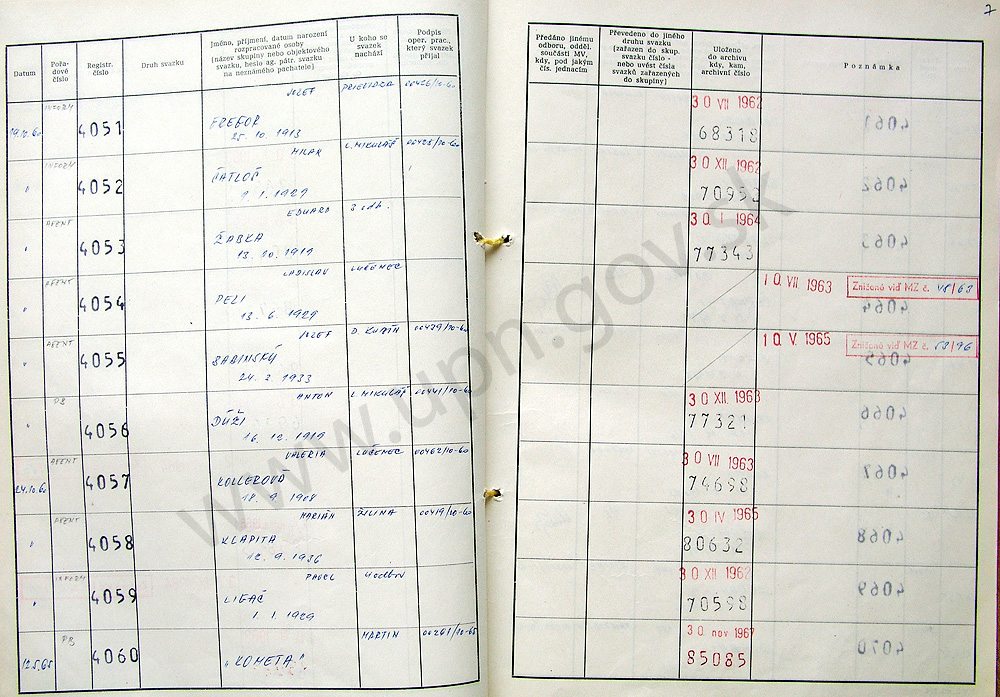 7
Datum
Pořadové číslo
Registr. číslo
Druh svazku
Jméno, příjmení, datum narození
rozpracované osoby
(název skupiny nebo objektového
svazku, heslo ag. pátr. svazku
na neznámého pachatele)
U koho se
svazek
nachází
Podpis
oper. prac.
který svazek
přijal
Předáno jinému
odboru, odděl.
součásti MV,
kdy, pod jakým
čís. jednacím
Převedeno do jiného
druhu svazku
(zařazen do skup.
svazku číslo -
nebo uvést čísla
svazků zařazených
do skupiny)
Uloženo
do archivu
kdy, kam,
archivní číslo
Poznámka
INFORM JOZEF PRIEVIDZA 00426/10-60 30 VII 1962
19.10.60 4051 GREGOR 68318
25. 10. 1913
INFORM MILAN L. MIKULÁŠ 00425/10-60 30 XII 1962
" 4052 ČATLOČ 70952
9. 1. 1929
AGENT EDUARD 3 odb. 30. I 1964
" 4053 ŽABKA 77343
13. 10. 1919
AGENT LADISLAV LUČENEC 10. VII 1963 Zničené viď MZ č. 48/63
" 4054 PELI
13. 6. 1929
AGENT JOZEF D. KUBÍN 00439/10-60 10. V. 1965 Zničené viď MZ č.
" 4055 SABINSKÝ
24. 2. 1933
PS ANTON L. MIKULÁŠ 00441/10-60 30 XII. 1963
" 4056 DÚŽI 77321
16. 12. 1919
AGENT VALERIA LUČENEC 00462/10-60 30 VII 1963
24.10.60 4057 KOLLEROVÁ 74698
18. 9. 1908
AGENT MARIÁN ŽILINA 00419/10-60 30 IV 1965
" 4058 KLAPITA 80632
12. 9. 1936
INFORM PAVEL 4 odbor 30 XII 1962
" 4059 LIGAČ 70598
1. 1. 1929
PS MARTIN 00261/10-65 30. nov 1967
12.5.65 4060 "KOMETA". 85085
www.upn.gov.sk